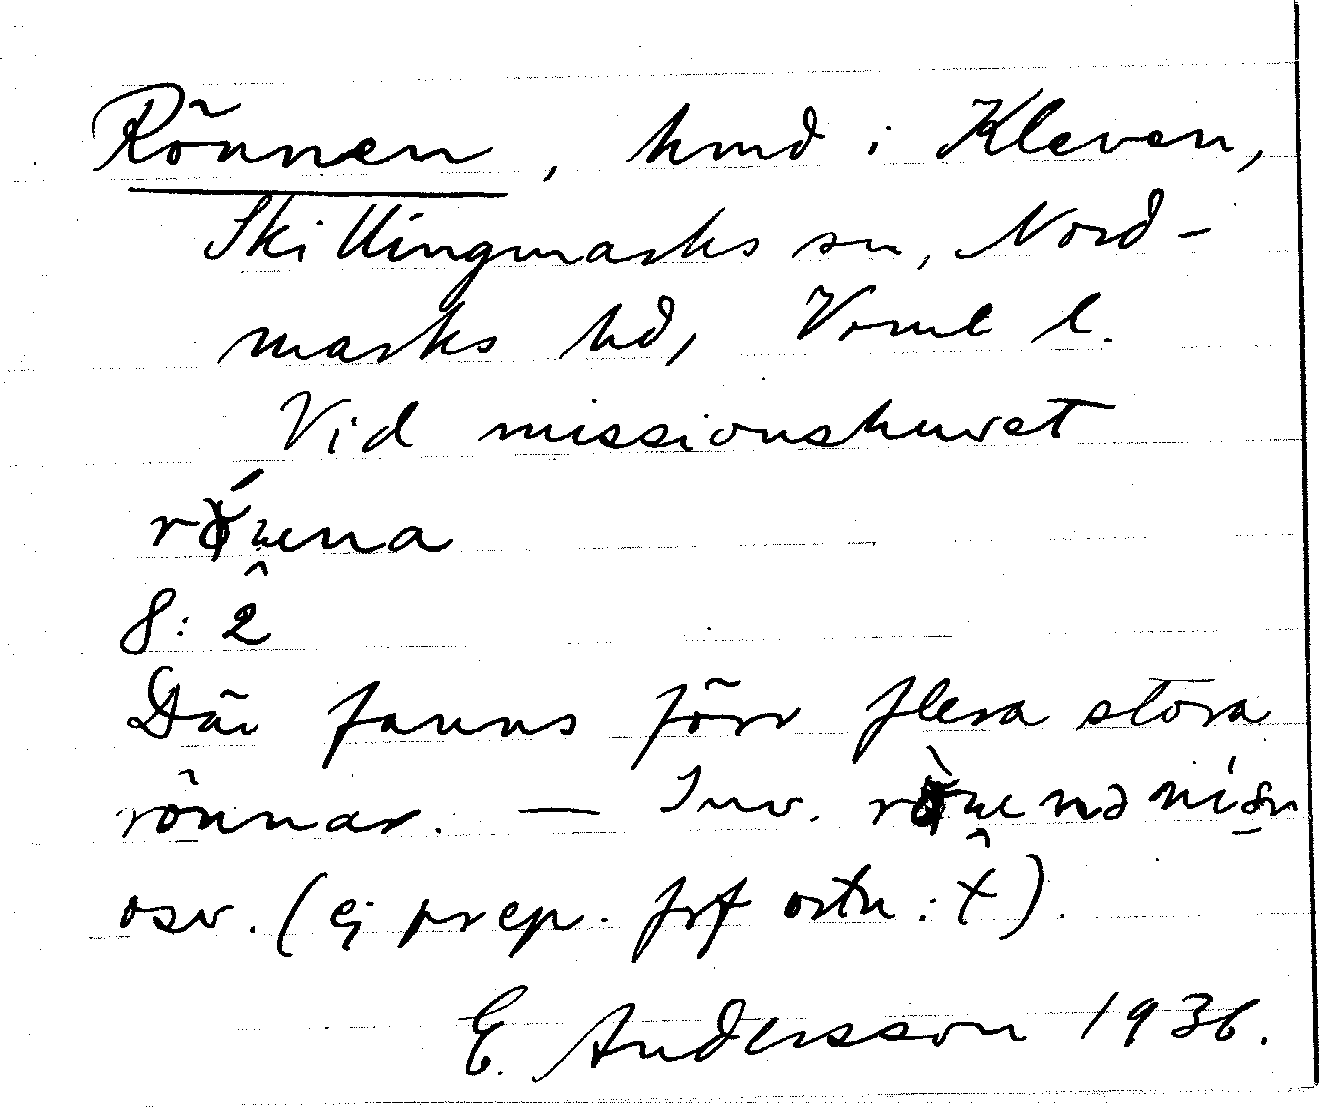 Rönnen, hmd i Kleven,
Skillingmarks sn, Nord-
marks hd, Verml l.
Vid missionshuset
8: 2
Där fanns förr flera stora
rönnar. — Inv.
osv. (ej prep. frf ortn: x̂).
E. Andersson 1936.